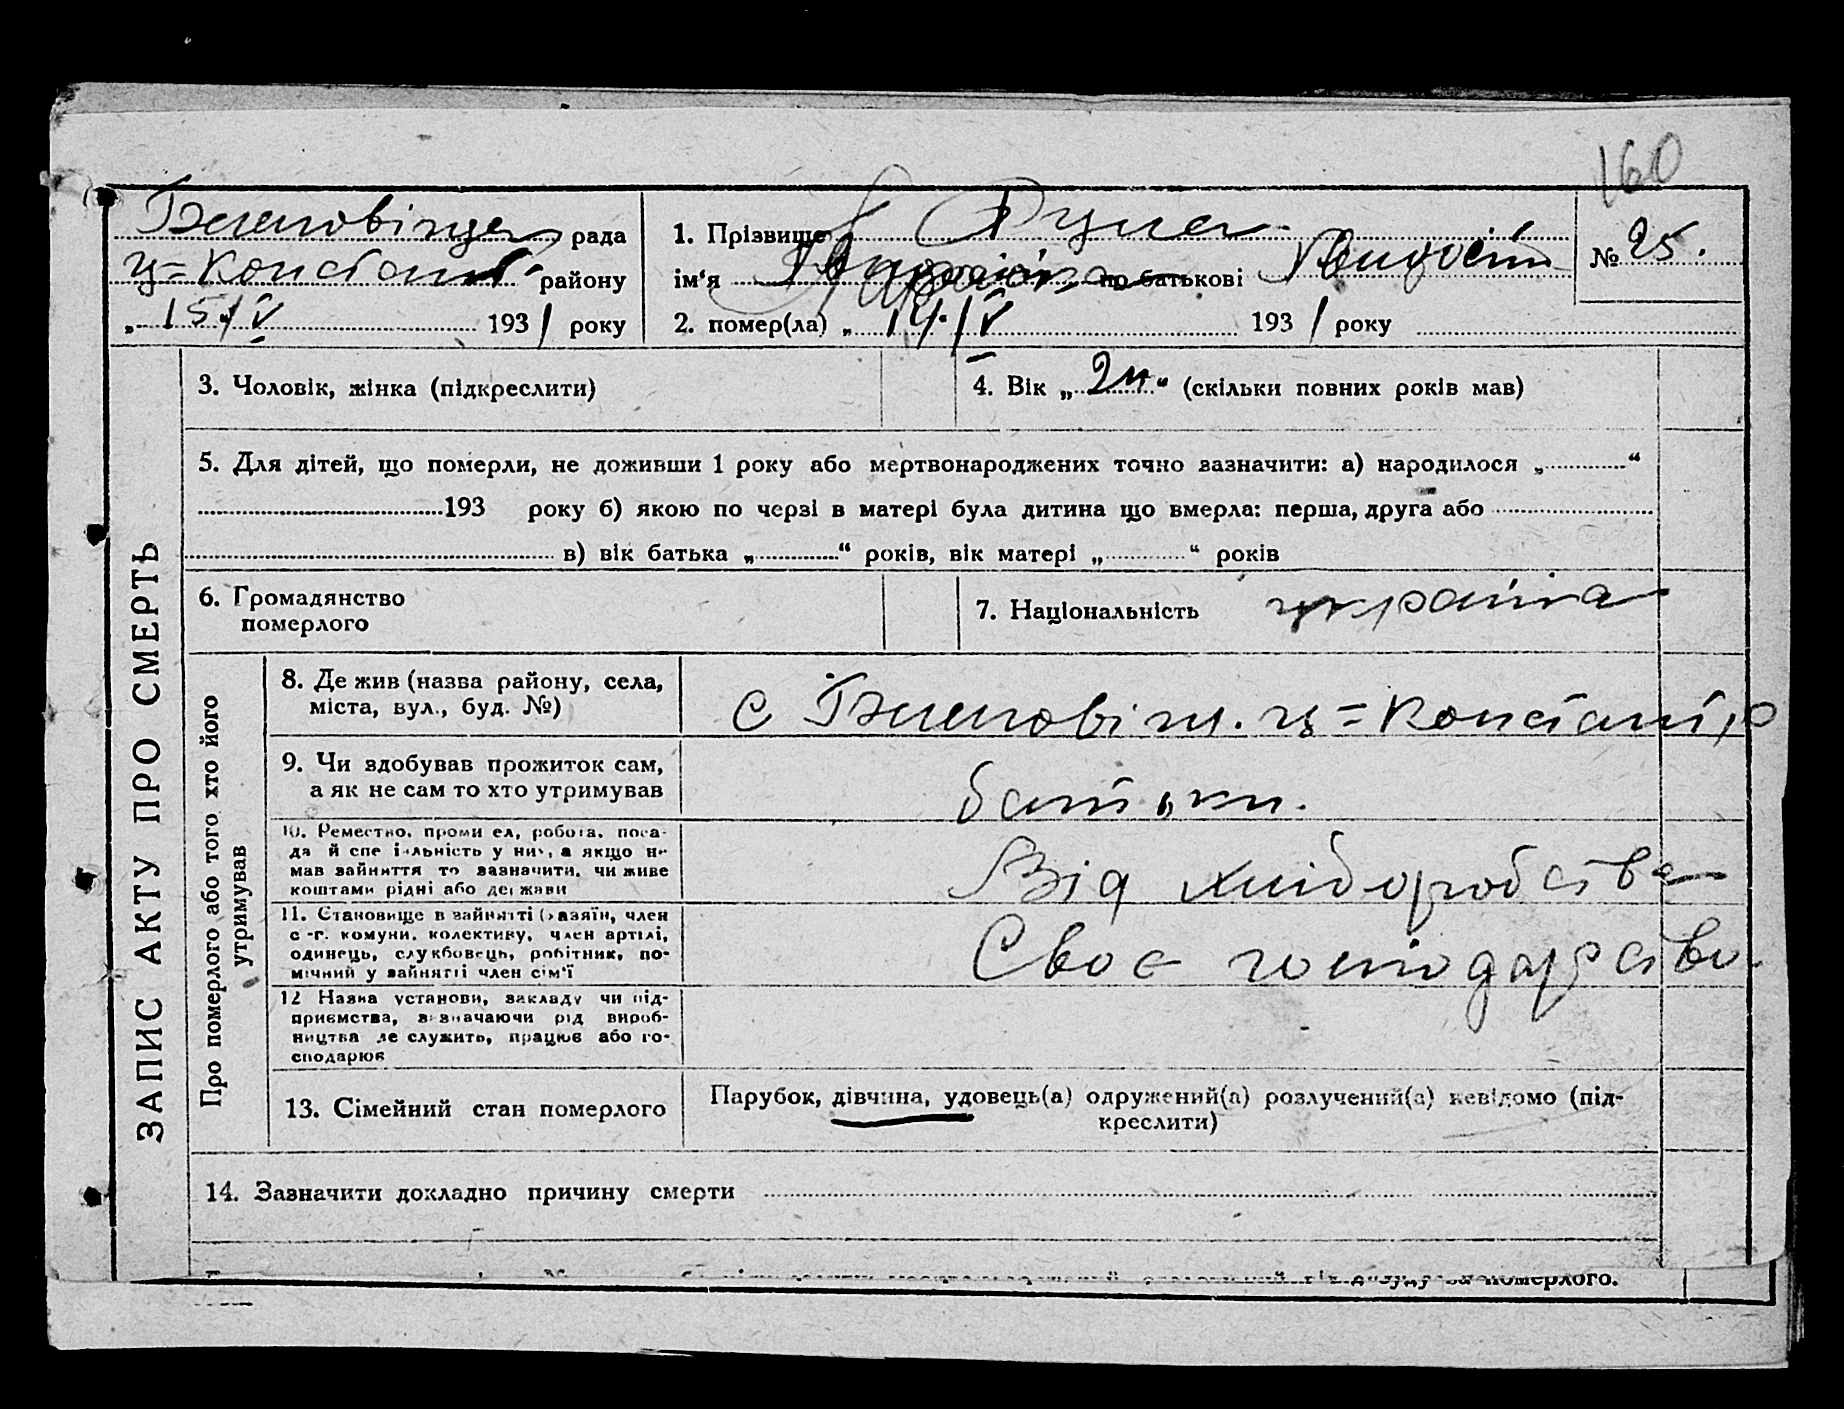 160
рада
ц=Констант района
"15/V 1931 року
1. Прізвище
ім'я по батькові
2. помер(ла) „14/V 1931 року
№ 25.
ЗАПИС АКТУ ПРО СМЕРТЬ
3. Чоловік, жінка (підкреслити)
4. Вік „ “ (скільки повних років мав)
5. Для дітей, що померли, не доживши 1 року або мертвонароджених точно зазначити: а) народилося „ “
193 року б) якою по черзі в матері була дитина що вмерла: перша, друга або
в) вік батька „ “ років, вік матері „ “ років
6. Громадянство
померлого
7. Національність україна
Про померлого або того хто його
утримував
8. Де жив (назва району, села,
міста, вул., буд. №)
с ц=Констант р
9. Чи здобував прожиток сам,
а як не сам то хто утримував
батьки.
10. Ремество, промисел, робота, поса-
да й спеціяльність у них, а якщо не
мав зайняття то зазначити, чи живе
коштами рідні або держави
Від хліборобства
11. Становище в зайнятті (хазяїн, член
с.-г. комуни, колективу, член артілі,
одинець, службовець, робітник, по-
мічний у зайнятті член сім'ї
Своє господарство.
12 Назва установи, закладу чи під-
приємства, зазначаючи рід вироб-
ництва де служить, працює або го-
сподарює
13. Сімейний стан померлого
Парубок, дівчина, удовець(а) одружений(а) розлучений(а) невідомо (під-
креслити)
14. Зазначити докладно причину смерти
померлого.